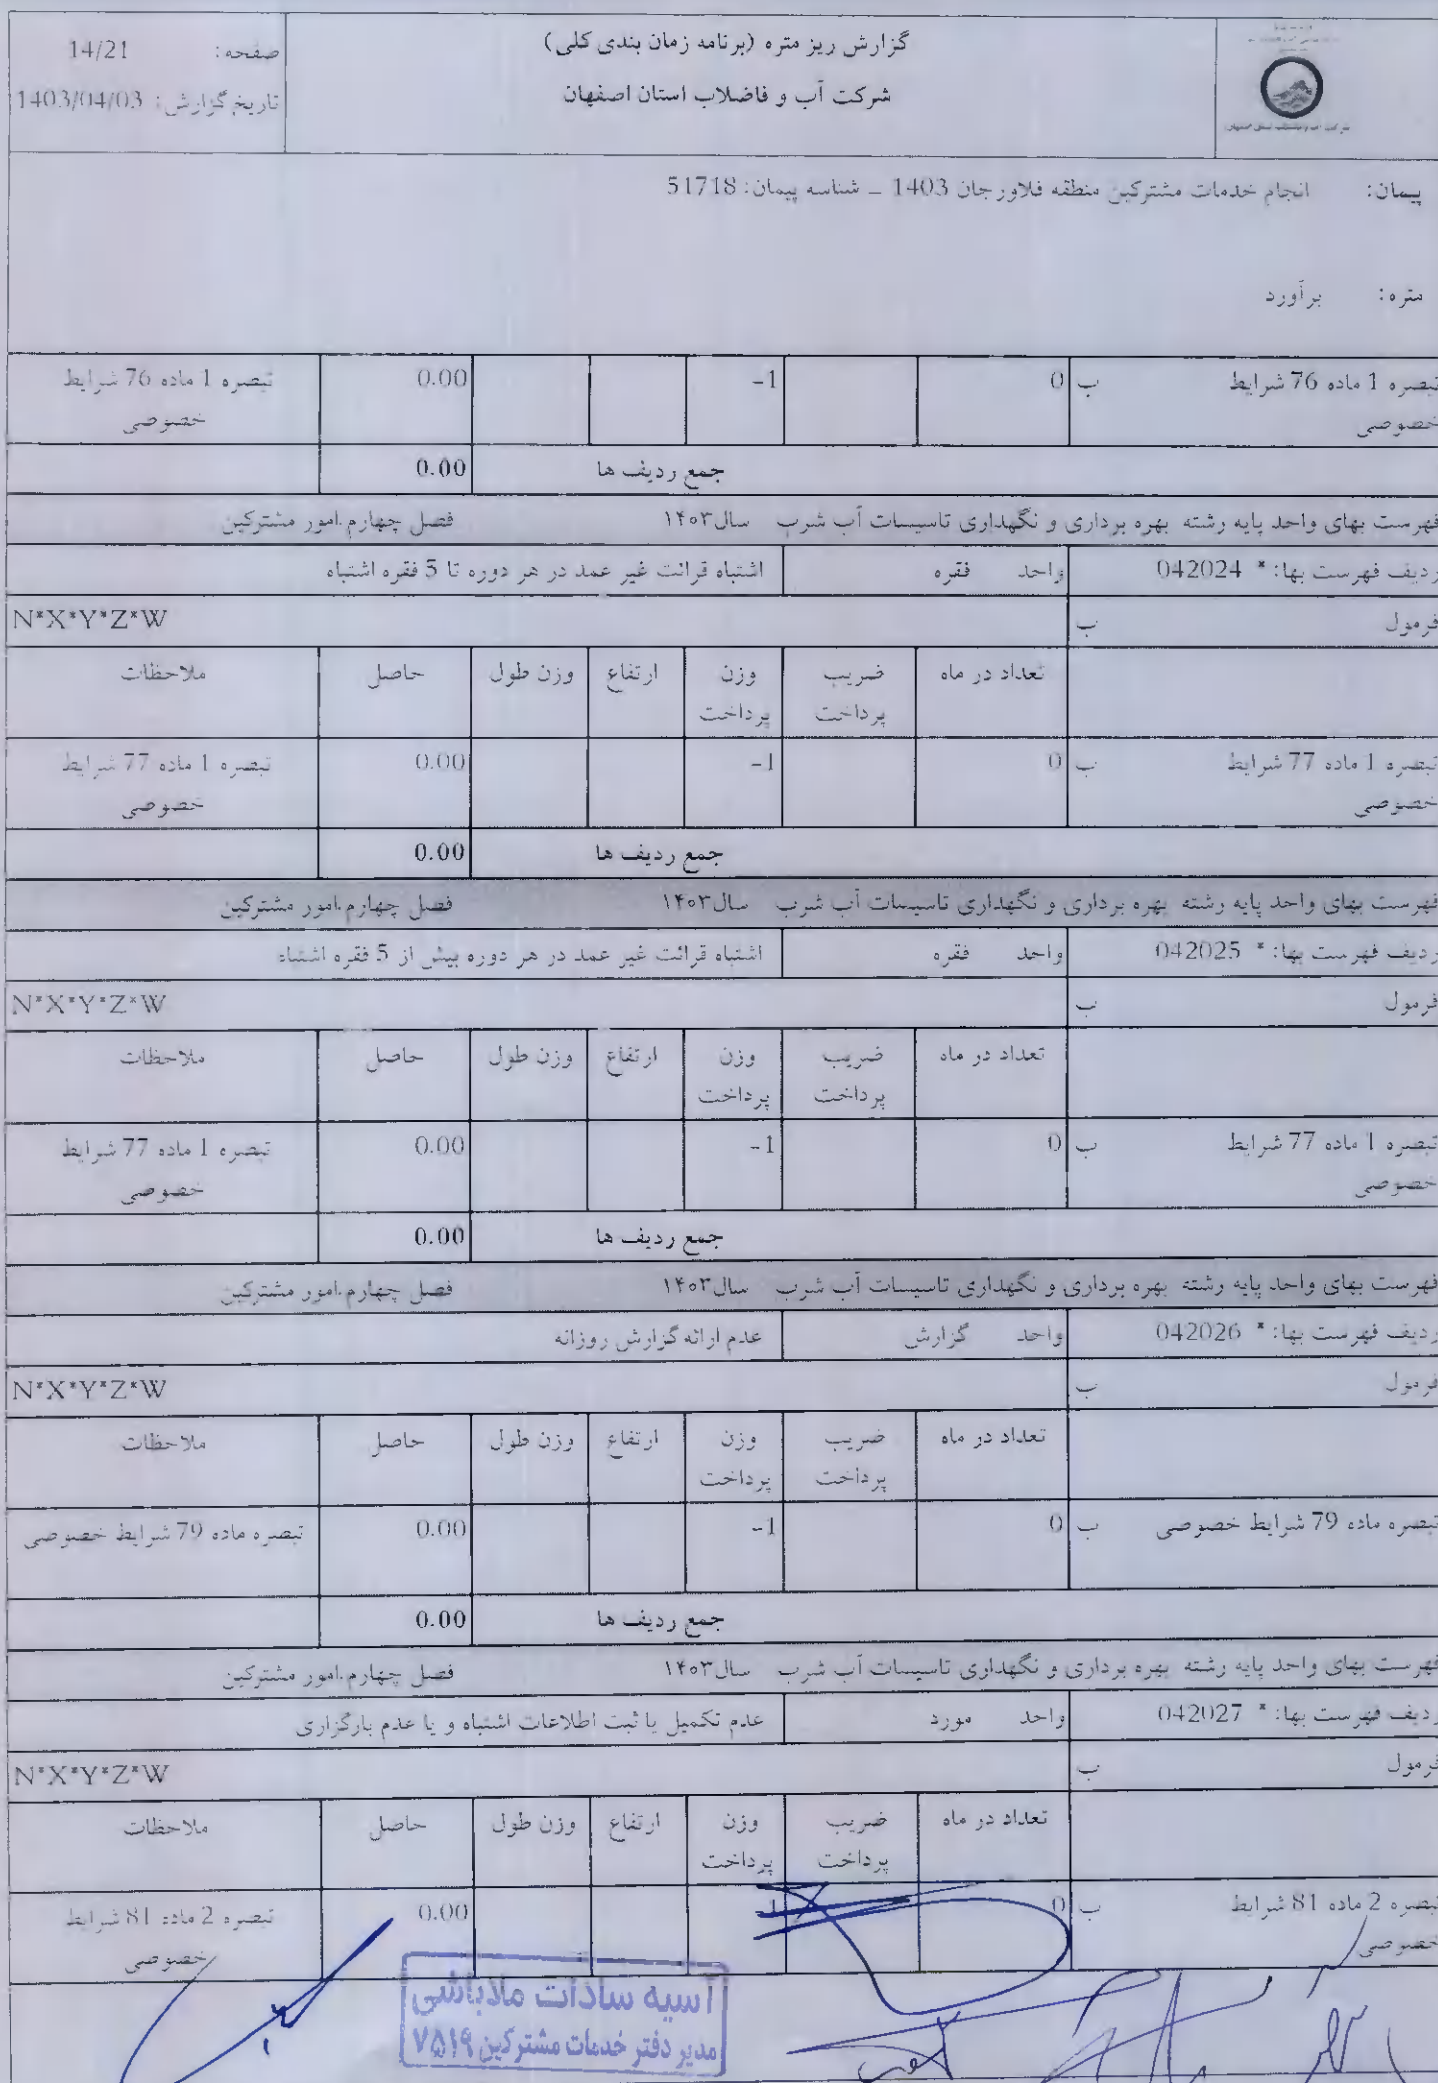 گزارش ریز متره (برنامه زمان بندی کلی)
شرکت آب و فاضلاب استان اصفهان
صفحه: 14/21
تاریخ گزارش: 1403/04/03
پیمان: انجام خدمات مشترکین منطقه فلاورجان 1403 _ شناسه پیمان: 51718
متره: برآورد
تبصره 1 ماده 76 شرایط خصوصی ب 0 -1 0.00 تبصره 1 ماده 76 شرایط خصوصی
جمع ردیف ها 0.00
فهرست بهای واحد پایه رشته بهره برداری و نگهداری تاسیسات آب شرب سال۱۴۰۳ فصل چهارم.امور مشترکین
ردیف فهرست بها: * 042024 واحد فقره اشتباه قرائت غیر عمد در هر دوره تا 5 فقره اشتباه
فرمول ب N*X*Y*Z*W
تعداد در ماه ضریب پرداخت وزن پرداخت ارتفاع وزن طول حاصل ملاحظات
تبصره 1 ماده 77 شرایط خصوصی ب 0 -1 0.00 تبصره 1 ماده 77 شرایط خصوصی
جمع ردیف ها 0.00
فهرست بهای واحد پایه رشته بهره برداری و نگهداری تاسیسات آب شرب سال۱۴۰۳ فصل چهارم.امور مشترکین
ردیف فهرست بها: * 042025 واحد فقره اشتباه قرائت غیر عمد در هر دوره بیش از 5 فقره اشتباه
فرمول ب N*X*Y*Z*W
تعداد در ماه ضریب پرداخت وزن پرداخت ارتفاع وزن طول حاصل ملاحظات
تبصره 1 ماده 77 شرایط خصوصی ب 0 -1 0.00 تبصره 1 ماده 77 شرایط خصوصی
جمع ردیف ها 0.00
فهرست بهای واحد پایه رشته بهره برداری و نگهداری تاسیسات آب شرب سال۱۴۰۳ فصل چهارم.امور مشترکین
ردیف فهرست بها: * 042026 واحد گزارش عدم ارائه گزارش روزانه
فرمول ب N*X*Y*Z*W
تعداد در ماه ضریب پرداخت وزن پرداخت ارتفاع وزن طول حاصل ملاحظات
تبصره ماده 79 شرایط خصوصی ب 0 -1 0.00 تبصره ماده 79 شرایط خصوصی
جمع ردیف ها 0.00
فهرست بهای واحد پایه رشته بهره برداری و نگهداری تاسیسات آب شرب سال۱۴۰۳ فصل چهارم.امور مشترکین
ردیف فهرست بها: * 042027 واحد مورد عدم تکمیل یا ثبت اطلاعات اشتباه و یا عدم بارگزاری
فرمول ب N*X*Y*Z*W
تعداد در ماه ضریب پرداخت وزن پرداخت ارتفاع وزن طول حاصل ملاحظات
تبصره 2 ماده 81 شرایط خصوصی ب 0 -1 0.00 تبصره 2 ماده 81 شرایط خصوصی
آسیه سادات ملاباشی
مدیر دفتر خدمات مشترکین ۷۵۱۹